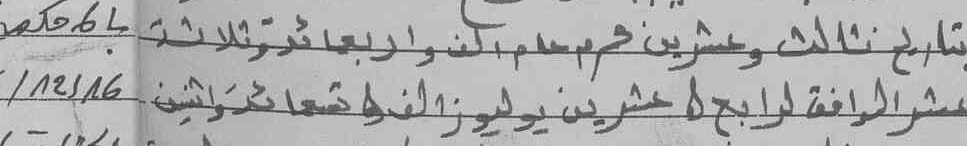 بتاريخ ثالث وعشرين محرم عام الف واربعمائة وثلاثة
عشر الموافق لرابع و عشرين يوليوز الف و تسعمائة واثنين